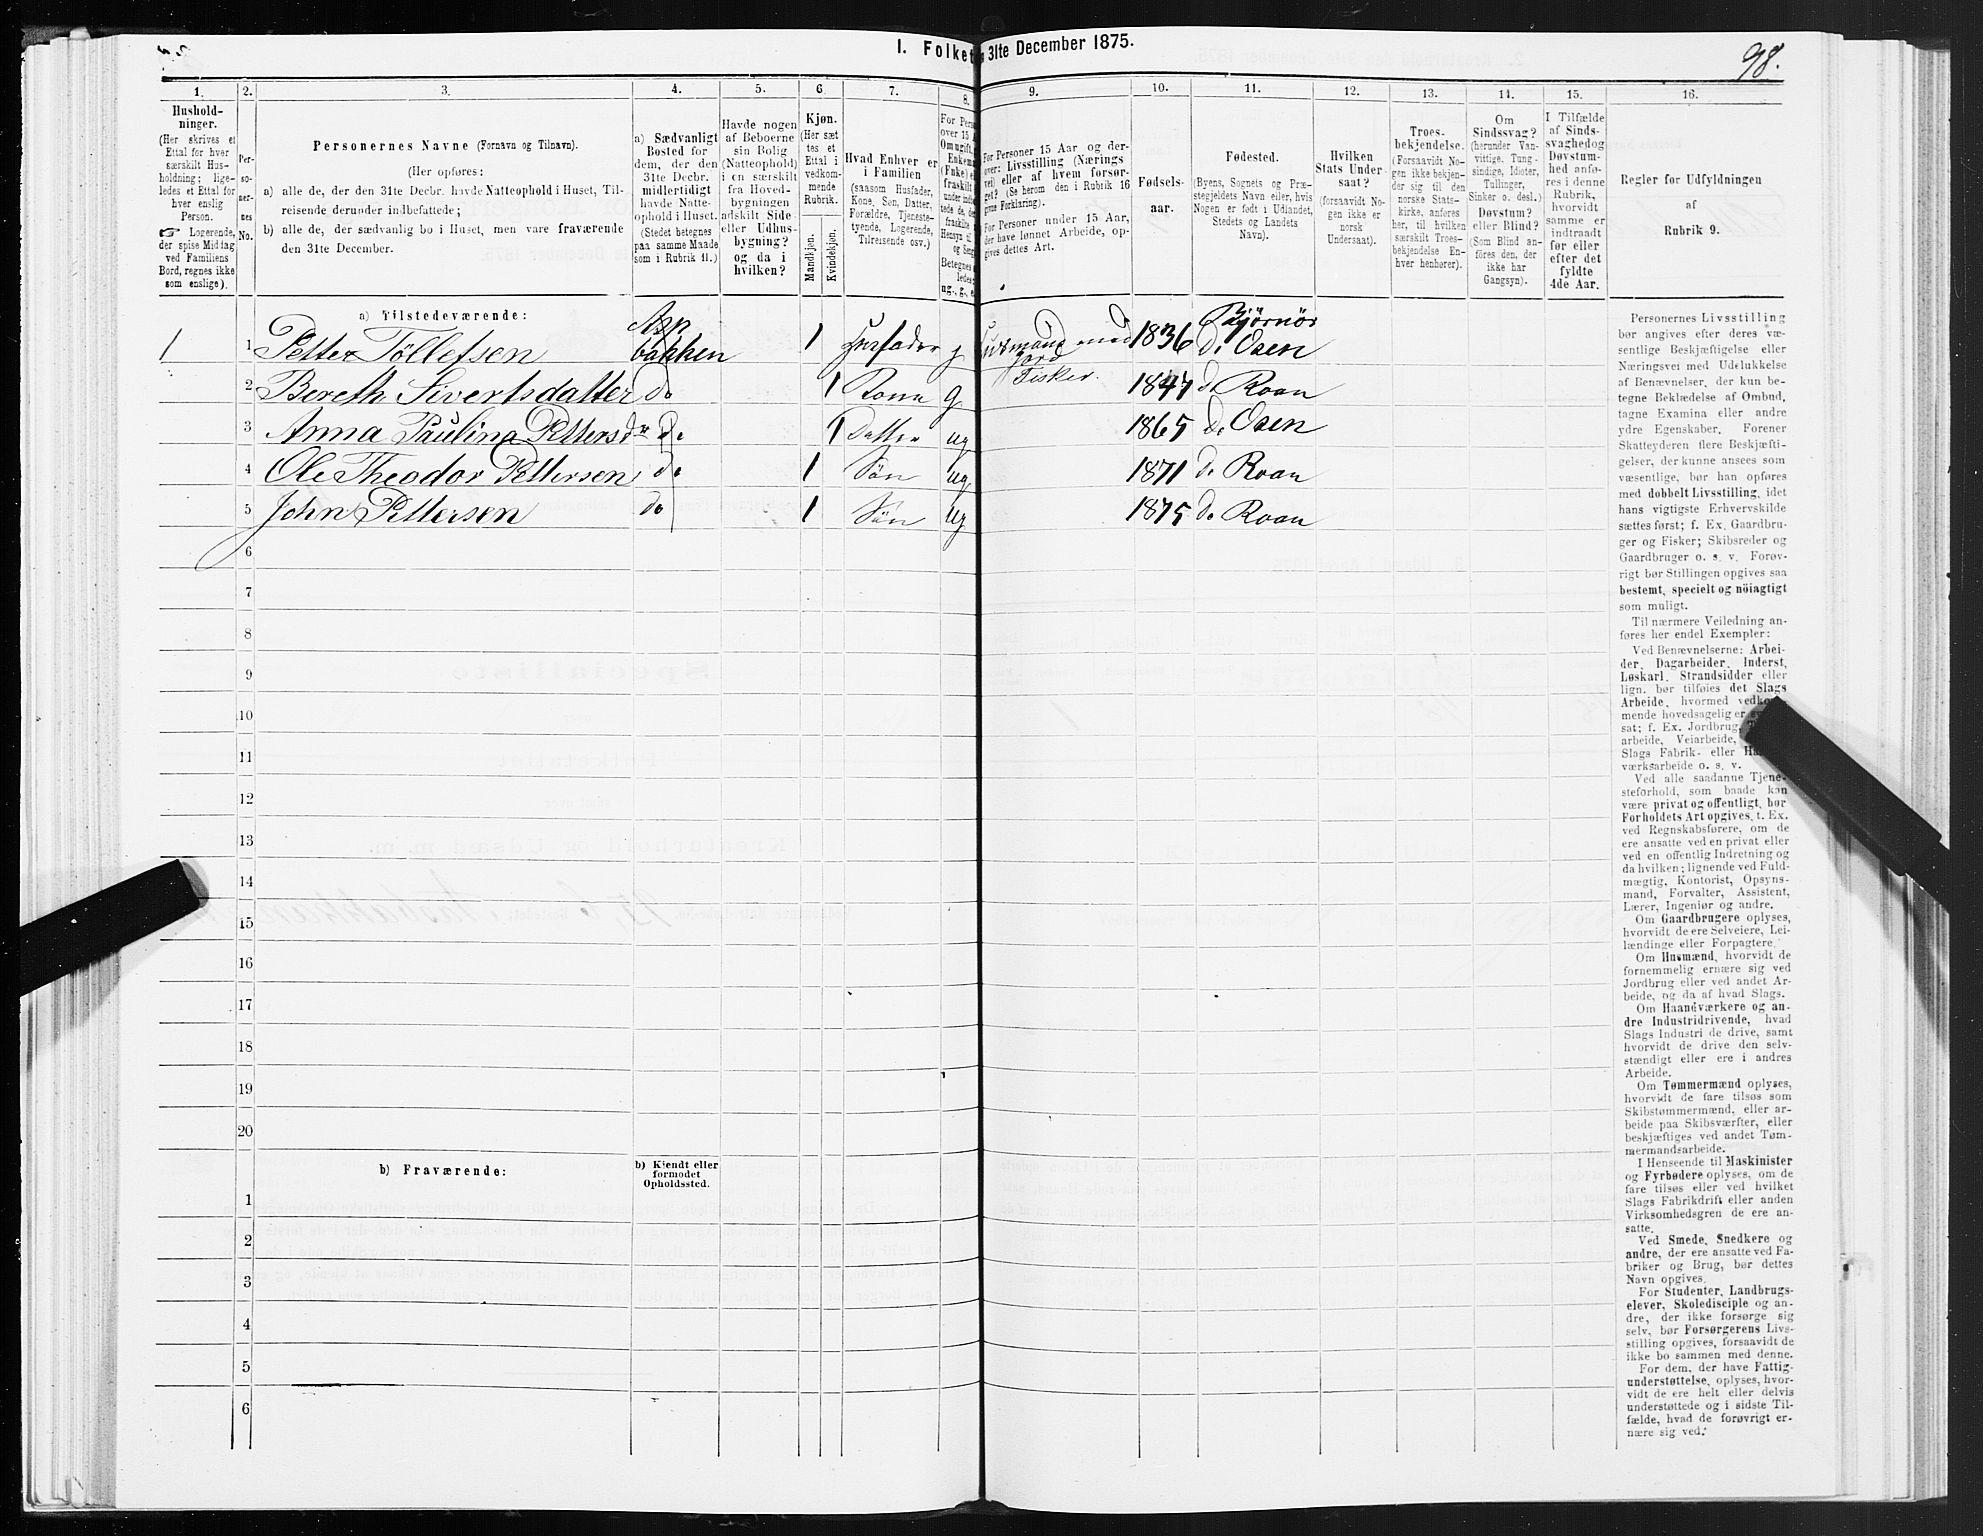 I. Folket 31te December 1875.
98.
1. 2. 3. 4. 5. 6. 7. 8. 9. 10. 11. 12. 13. 14. 15. 16.
Hushold-
ninger.
(Her skrives et
Ettal for hver
særskilt Hus-
holdning; lige-
ledes et Ettal for
hver enslig
Person.
☞ Logerende,
der spise Middag
ved Familiens
Bord, regnes ikke
som enslige).
Per-
so-
ner-
nes
No.
Personernes Navne (Fornavn og Tilnavn).
(Her opføres:
a) alle de, der den 31te Decbr. havde Natteophold i Huset, Til-
reisende derunder indbefattede;
b) alle de, der sædvanlig bo i Huset, men vare fraværende
den 31te December.
a) Sædvanligt
Bosted for
dem, der den
31te Decbr.
midlertidigt
havde Natte-
ophold i Huset.
(Stedet betegnes
paa samme Maade
som i Rubrik 11.)
Havde nogen
af Beboerne
sin Bolig
(Natteophold)
i en særskilt
fra Hoved-
bygningen
adskilt Side
eller Udhus-
bygning?
og da i
hvilken?
Kjøn.
(Her sæt
tes et
Ettal i
vedkom-
mende
Rubrik.
Mandkjøn.
Kvindekjøn.
Hvad Enhver er
i Familien
(saasom Husfader,
Kone, Søn, Datter,
Forældre, Tjeneste-
tyende, Logerende,
Tilreisende osv.)
For Pers
over 15 A
Omugift,
Enkema
(Fnke) e
fraskilt
ug., g., e.
For Personer 15 Aar og der-
over: Livsstilling (Nærings
vei) eller af hvem forsør-
get? (Se herom den i Rubrik 16
givne Forklaring).
For Personer under 15 Aar,
der have lønnet Arbeide, op-
gives dettes Art.
Fødsels-
aar.
Fødested.
(Byens, Sognets og Præ-
stegjeldets Navn eller, hvis
Nogen er født i Udlandet,
Stedets og Landets
Navn).
Hvilken
Stats Under-
saat?
(forsaavidt No-
gen ikke er
norsk
Undersaat).
Troes-
bekjendelse.
(Forsaavidt No-
gen ikke bekjen-
der sig til den
norske Stats-
kirke, anføres
her, til hvilken
særskilt Troes-
bekjendelse En-
hver henhører).
Om
Sindssvag?
(herunder Van-
vittige, Tung-
sindige, Idioter,
Tullinger,
Sinker o. desl.)
Døvstum?
eller Blind?
(Som Blind an-
føres den, der
ikke har
Gangsyn).
I Tilfælde
af Sinds-
svaghedog
Døvstum-
hed anfø-
res i denne
Rubrik,
hvorvidt
samme er
indtraadt
før eller
efter det
fyldte
4de Aar.
Regler for Udfyldningen
af
Rubrik 9.
a) Tilstedeværende:
1 1 Petter Tollefsen Aspbakken 1 Husfader g Husmand med Jord Fisker. 1836 Bjørnør do Osen
2 Bereth Sivertsdatter do 1 Kone g 1847 do Roan
3 Anna Paulina Petters dr do 1 Datter ug 1865 do Osen
4 Ole Theodor Pettersen do 1 Søn ug 1871 do Roan
5 John Pettersen do 1 Søn ug 1875 do Roan
6
7
8
9
10
11
12
13
14
15
16
17
18
19
20
b) Fraværende:
b) Kjendt eller
formodet
Opholdssted.
1
2
3
4
5
6
Personernes Livsstilling
bør angives efter deres væ-
sentlige Beskjæftigelse eller
Næringsvei med Udelukkelse
af Benævnelser, der kun be-
tegne Beklædelse af Ombud,
tagne Examina eller andre
ydre Egenskaber. Forener
Skatteyderen flere Beskjæfti-
gelser, der kunne ansees som
væsentlige, bør han opføres
med dobbelt Livsstilling, idet
hans vigtigste Erhvervskilde
sættes først; f. Ex. Gaardbru-
ger og Fisker; Skibsreder og
Gaardbruger o. s. v. Forøv-
rigt bør Stillingen opgives saa
bestemt, specielt og nöiagtigt
som muligt.
Til nærmere Veiledning an-
føres her endel Exempler:
Ved Benævnelserne: Arbei-
der, Dagarbeider, Inderst,
Løskarl, Strandsidder eller
lign. bør tilføies det Slags
Arbeide, hvormed vedkom-
mende hovedsagelig er
sat; f. Ex. Jordbrug,
arbeide, Veiarbeide,
Slags Fabrik- eller
værksarbeide o. s. v.
Ved alle saadanne Tjene-
steforhold, som baade kan
være privat og offentligt, bør
Forholdets Art opgives, t. Ex.
ved Regnskabsførere, om de
ere ansatte ved en privat eller
ved en offentlig Indretning og
da hvilken; lignende ved Fuld-
mægtig, Kontorist, Opsyns-
mand, Forvalter, Assistent,
Lærer, Ingeniør og andre.
Om Gaardbrugere oplyses,
hvorvidt de ere Selveiere, Lei-
lændinge eller Forpagtere.
Om Husmænd, hvorvidt de
fornemmelig ernære sig ved
Jordbrug eller ved andet Ar-
beide, og da af hvad Slags.
Om Haandværkere og an-
dre Industridrivende, hvad
Slags Industri de drive, samt
hvorvidt de drive den selv-
stændigt eller ere i andres
Arbeide.
Om Tømmermænd oplyses,
hvorvidt de fare tilsøs som
Skibstømmermænd, eller ar-
beide paa Skibsværfter, eller
beskjæftiges ved andet Tøm-
mermandsarbeide.
I Henseende til Maskinister
og Fyrbødere oplyses, om de
fare tilsøs eller ved hvilket
Slags Fabrikdrift eller anden
Virksomhedsgren de ere an-
satte.
Ved Smede, Snedkere og
andre, der ere ansatte ved Fa-
briker og Brug, bør dettes
Navn opgives.
For Studenter, Landbrugs-
elever, Skoledisciple og an-
dre, der ikke forsørge sig
selv, bør Forsørgerens Livs-
stilling opgives, forsaavidt de
ikke bo sammen med denne.
For dem, der have Fattig-
understøttelse, oplyses, hvor-
vidt de ere helt eller delvis
understøttede og i sidste Til-
fælde, hvad de forøvrigt er-
nære sig ved.